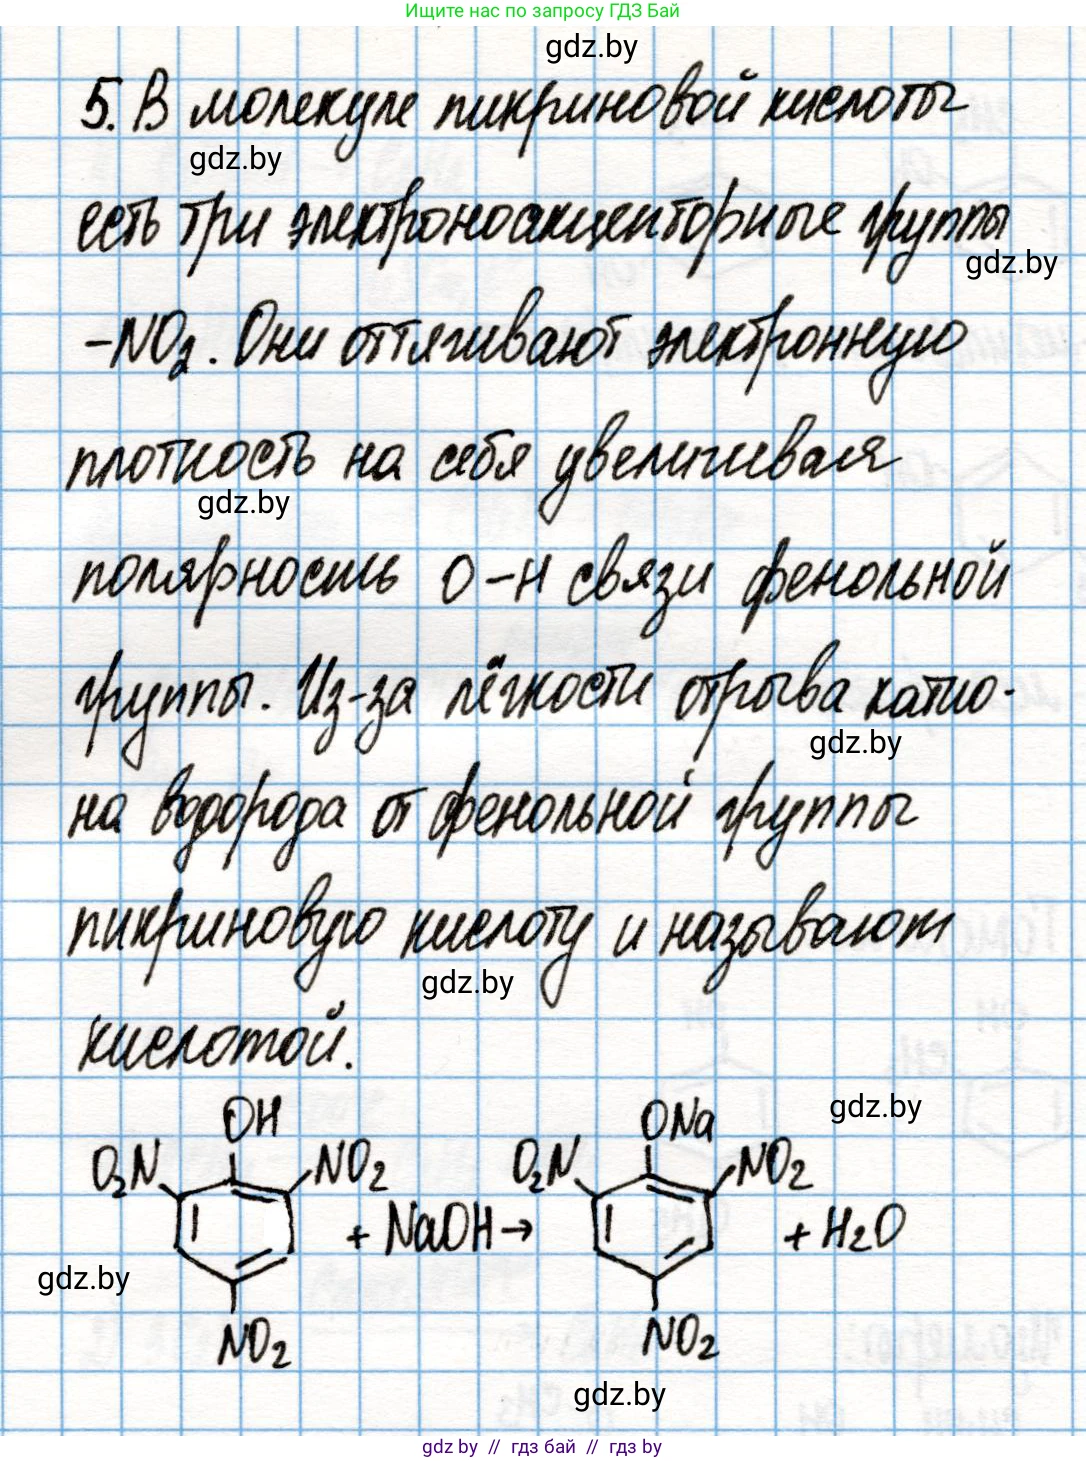 Ищите нас по запросу ГДЗ Бай
gdz.by
5. В молекуле пикриновой кислоты
gdz.by
есть три электроноакцепторные группы
gdz.by
-NO2. Они оттягивают электронную
плотность на себя увеличивая
gdz.by
полярность O-H связи фенольной
группы. Из-за лёгкости отрыва катио-
gdz.by
на водорода от фенольной группы
пикриновую кислоту и называют
gdz.by
кислотой.
gdz.by
OH ONa
O2N NO2 O2N NO2
+ NaOH → + H2O
gdz.by
NO2 NO2
gdz.by
gdz by // гдз бай // гдз by